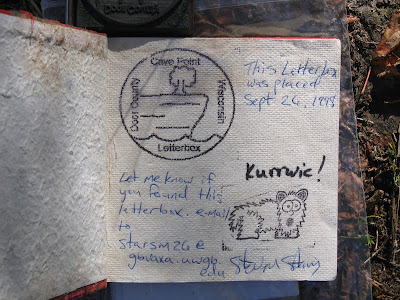 Door County
Cave Point
Door County
Wisconsin
Letterbox
This Letterbox
was placed
Sept 26, 1998
Kurrwic!
Let me know if
you found this
letterbox. e-mail
to
starsm26@
gbvaxa.uwgb.
edu